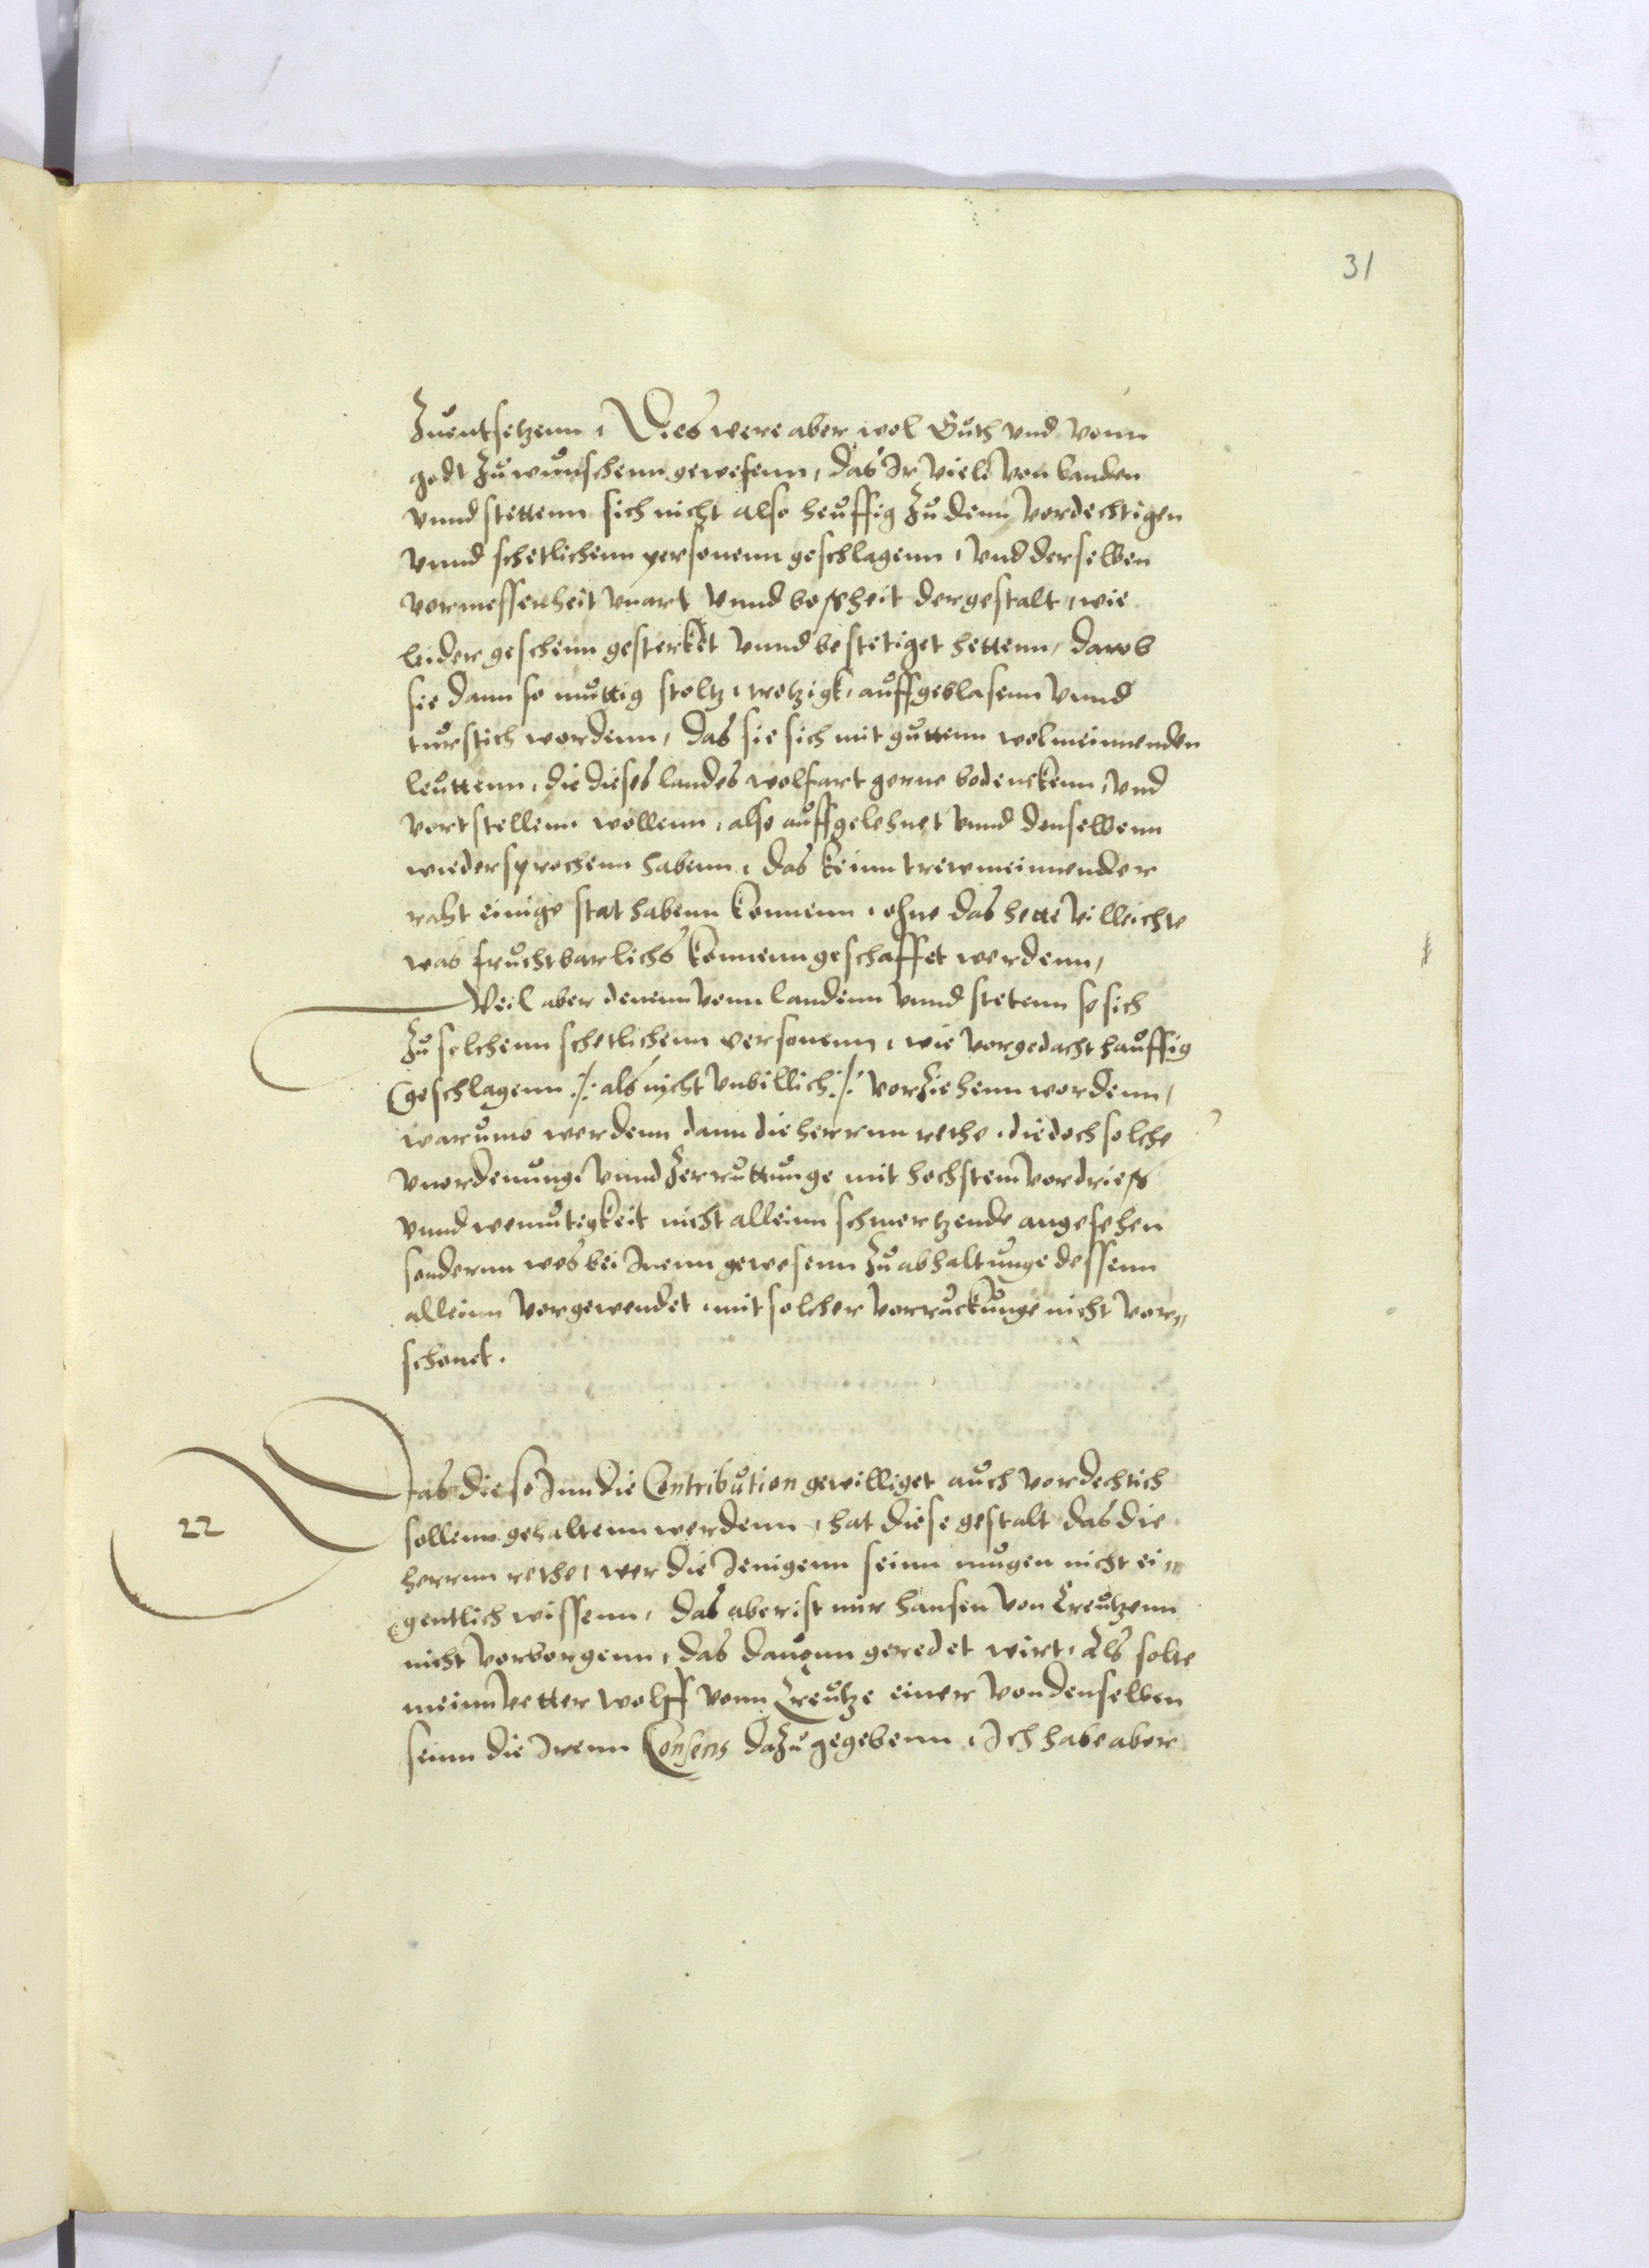 31
Zuentsetzenn, Dies were aber wol Guth vnd vonn
godt zuwunschenn gewesenn, das Ir viele von landen
vnnd stettenn sich nicht also heuffig zu denn vordechtigen
vnnd schetlichenn personenn geschlagenn, vnd derselben
vormessenheit vnart vnnd bossheit dergestalt, wie
leider geschenn gesterket vnnd bestetiget hettenn, darob
sie dann so muttig stoltz, trotzigk, auffgeblasenn vnnd
turstich wordenn, das sie sich mit guttenn wolmeinnenden
leuttenn, die dieses landes wolfart gerne bedenckenn, vnd
vortstellenn wollenn, also auffgelehnet vnnd denselbenn
wiedersprochenn habenn, das keinn trewmeinnender
raht einige stat habenn konnenn, ohne das hette villeichte
was fruchtbarlichs konnenn geschaffet werdenn,
Weil aber denenn vonn landenn vnnd stetenn so sich
zu solchenn schetlichenn personenn, wie vorgedacht hauffig
geschlagenn /: als nicht vnbillich :/ vorziehenn wordenn,
warumb werdenn dann die herrnn rethe, die doch solche
vnordenunge vnnd zerruttunge mit hochstem vordriess
vnnd wemutigkeit nicht alleinn schmertzende angesehen
sondernn wes bei Inenn gewesenn zu abhaltunge dessenn
alleinn vorgewendet, mit solcher vorruckunge nicht vor„
schonet.
22
Das diese Inn die Contribution gewilliget auch vordechtich
sollenn gehaltenn werdenn, hat diese gestalt das die
herrnn rethe, wer die Jenigenn seinn mugen nicht ei„
gentlich wissenn, das aber ist mir hansen von Creutzenn
nicht vorborgenn, das dauonn geredet wirt, Als solte
meinn vetter wolff vonn Creutze einer von denselben
seinn die Irenn Consens dazu gegebenn, Ich habe aber